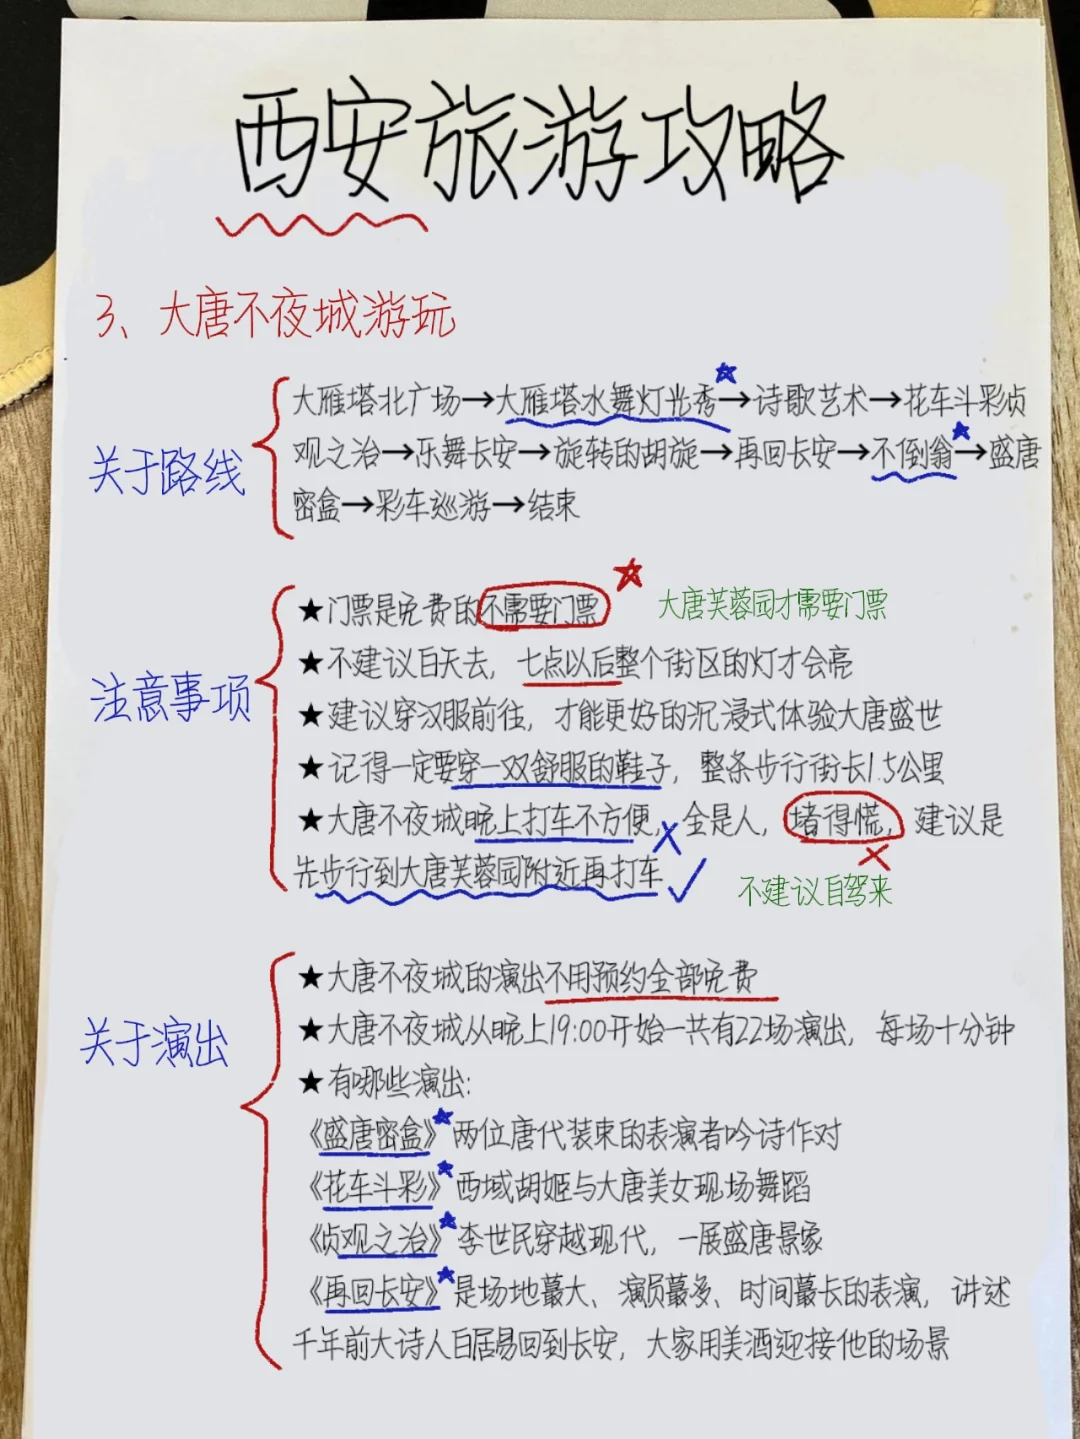 西安旅游攻略
3、大唐不夜城游玩
关于路线
大雁塔北广场→大雁塔水舞灯光秀→诗歌艺术→花车斗彩贞
观之治→乐舞长安→旋转的胡旋→再回长安→不倒翁→盛唐
密盒→彩车巡游→结束
注意事项
★门票是免费的不需要门票
大唐芙蓉园才需要门票
★不建议白天去，七点以后整个街区的灯才会亮
★建议穿汉服前往，才能更好的沉浸式体验大唐盛世
★记得一定要穿一双舒服的鞋子，整条步行街长1.5公里
★大唐不夜城晚上打车不方便，全是人，堵得慌，建议是
先步行到大唐芙蓉园附近再打车
不建议自驾来
关于演出
★大唐不夜城的演出不用预约全部免费
★大唐不夜城从晚上19:00开始一共有22场演出，每场十分钟
★有哪些演出:
《盛唐密盒》两位唐代装束的表演者吟诗作对
《花车斗彩》西域胡姬与大唐美女现场舞蹈
《贞观之治》李世民穿越现代，一展盛唐景象
《再回长安》是场地最大、演员最多、时间最长的表演，讲述
千年前大诗人白居易回到长安，大家用美酒迎接他的场景